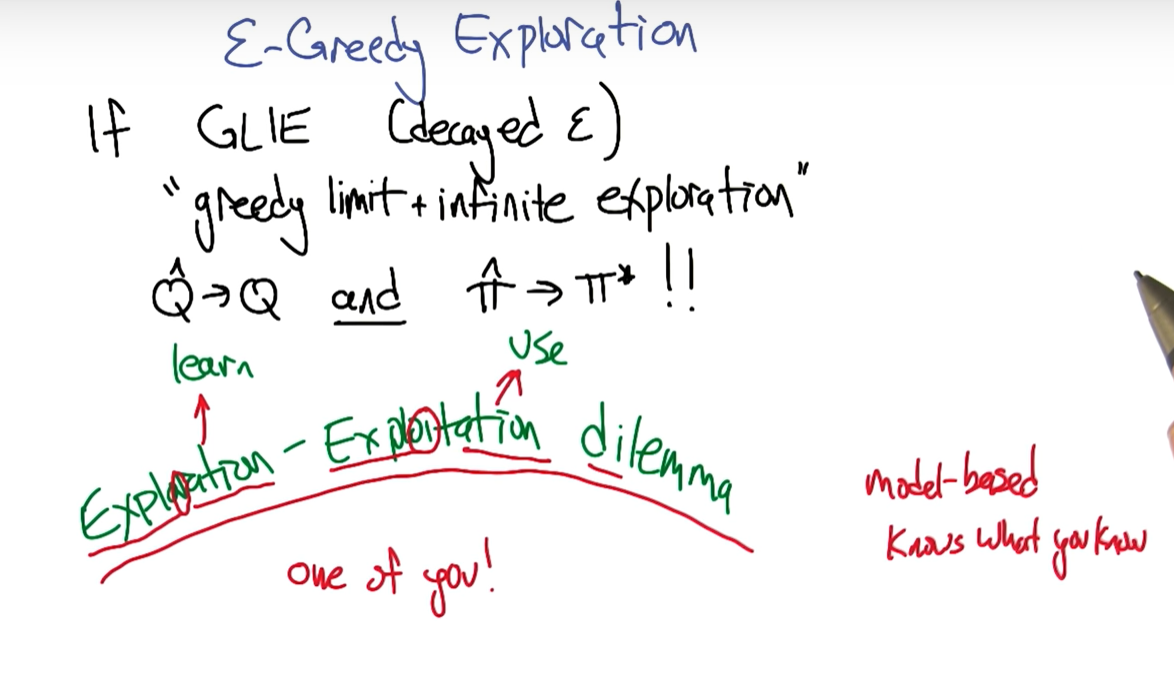 ε-Greedy Exploration
If GLIE (decayed ε)
"greedy limit + infinite exploration"
Q̂→Q and π̂→π* !!
learn
use
Exploration - Exploitation dilemma
model-based
Knows what you know
one of you!